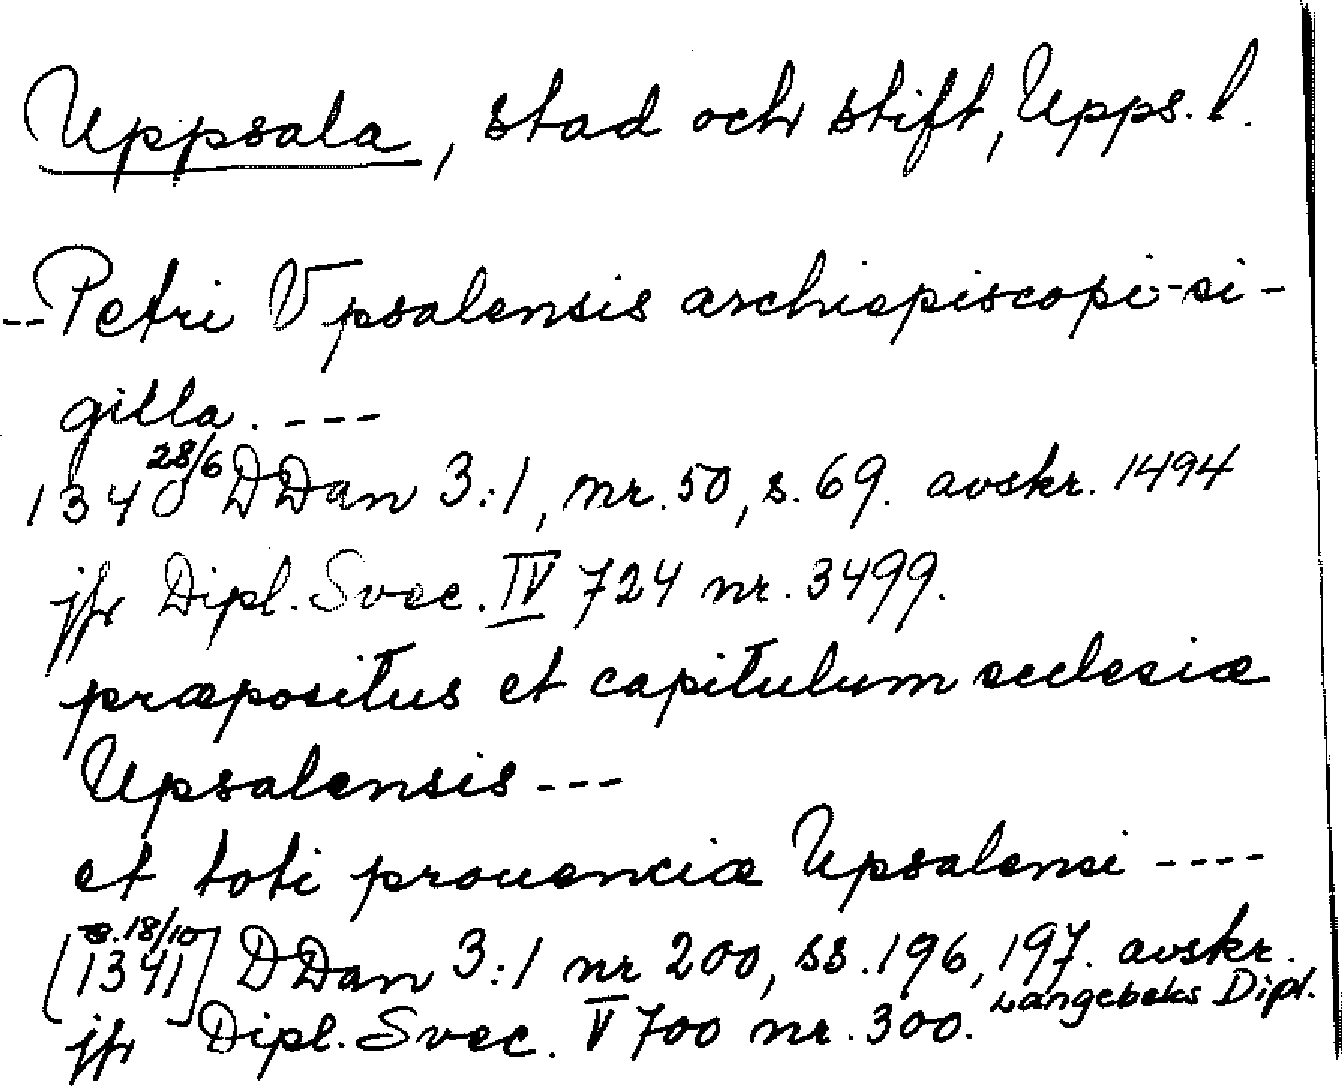 Uppsala, stad och stift, Upps. l.
-- Petri Vpsalensis archiepiscopi - si-
gilla. ---
1340 28/6 DDan 3:1, nr. 50, s. 69. avskr. 1494
jfr Dipl. Svec. IV 724 nr. 3499.
præpositus et capitulum ecclesiæ
Upsalensis ---
et toti prouenciæ Upsalensi ----
[1341 e. 18/10] DDan 3:1 nr 200, ss. 196, 197. avskr.
Langebeks Dipl.
jfr Dipl. Svec. V 700 nr. 300.